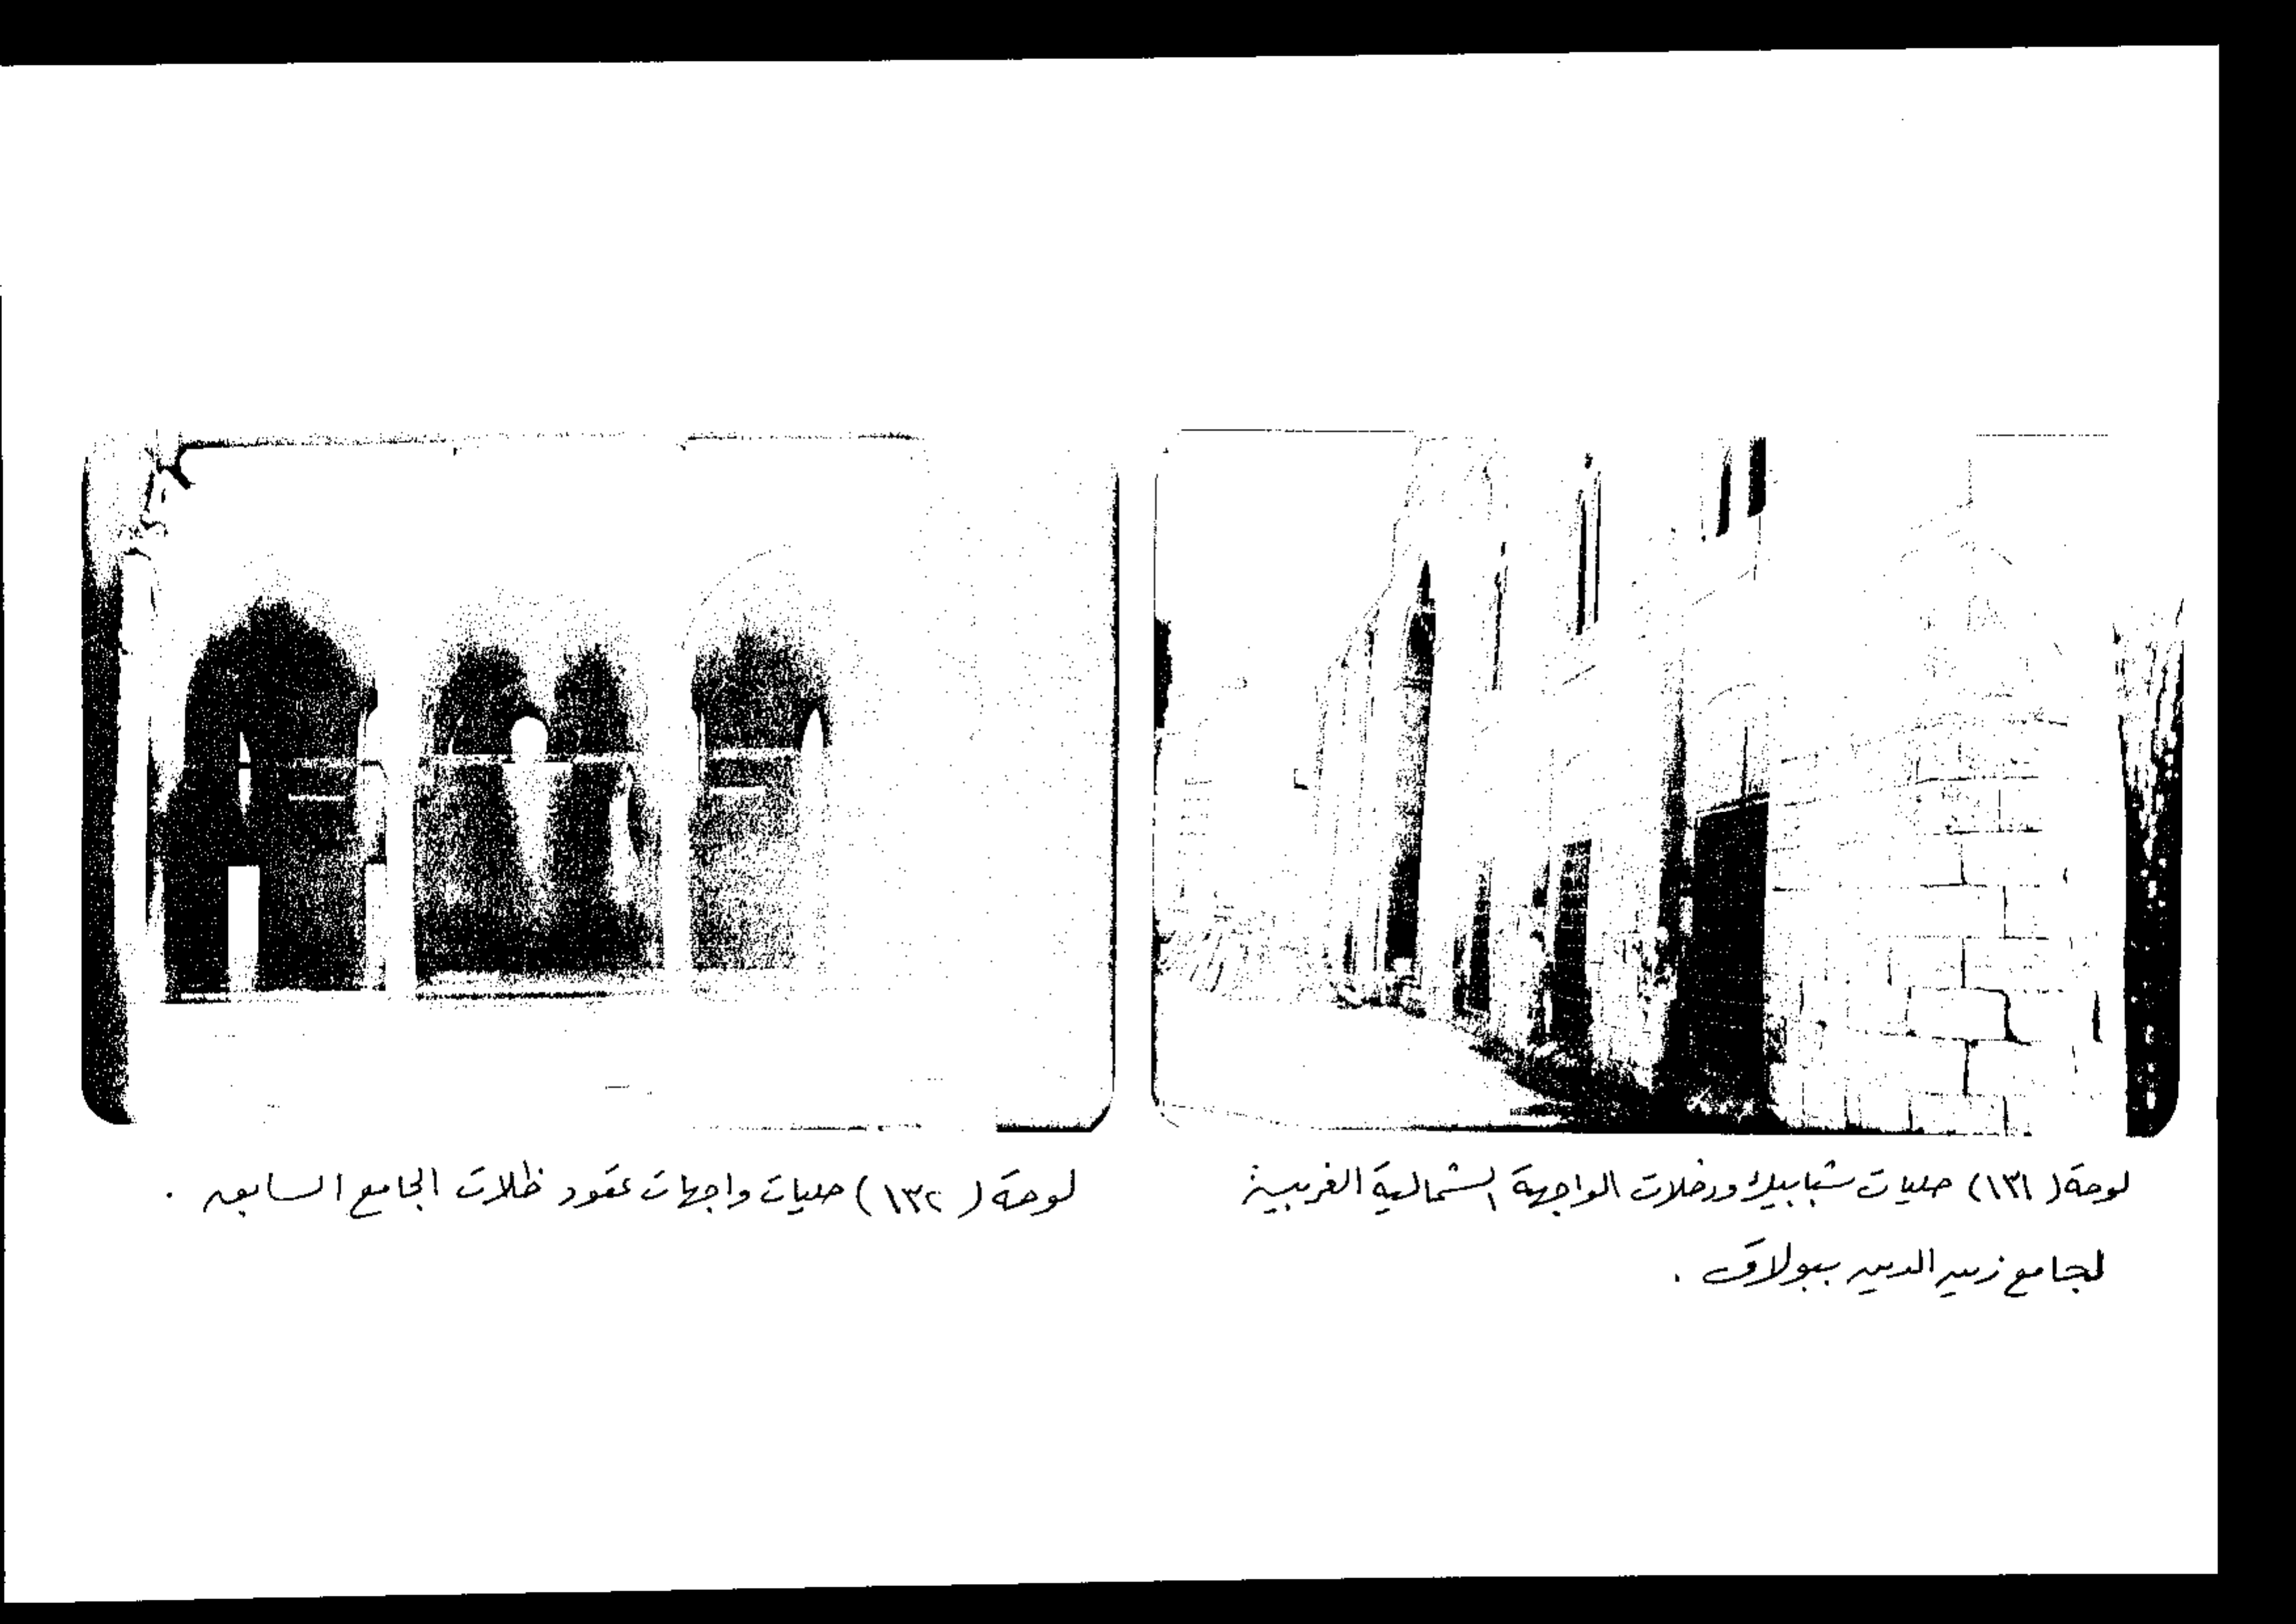 لوحة (١٣١) حليات شبابيك ودخلات الواجهة الشمالية الغربية
لجامع زين الدين ببولاق .
لوحة ( ١٣٢ ) حليات واجهات عقود ظلات الجامع السابق .